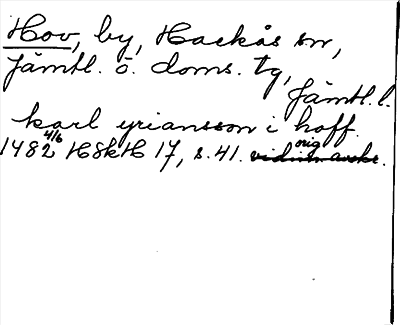 Hov, by, Hackås sn,
Jämtl. ö. doms. tg,
Jämtl. l.
karl yriansson i hoff
1482 4/6 HSkH 17, s. 41. orig.